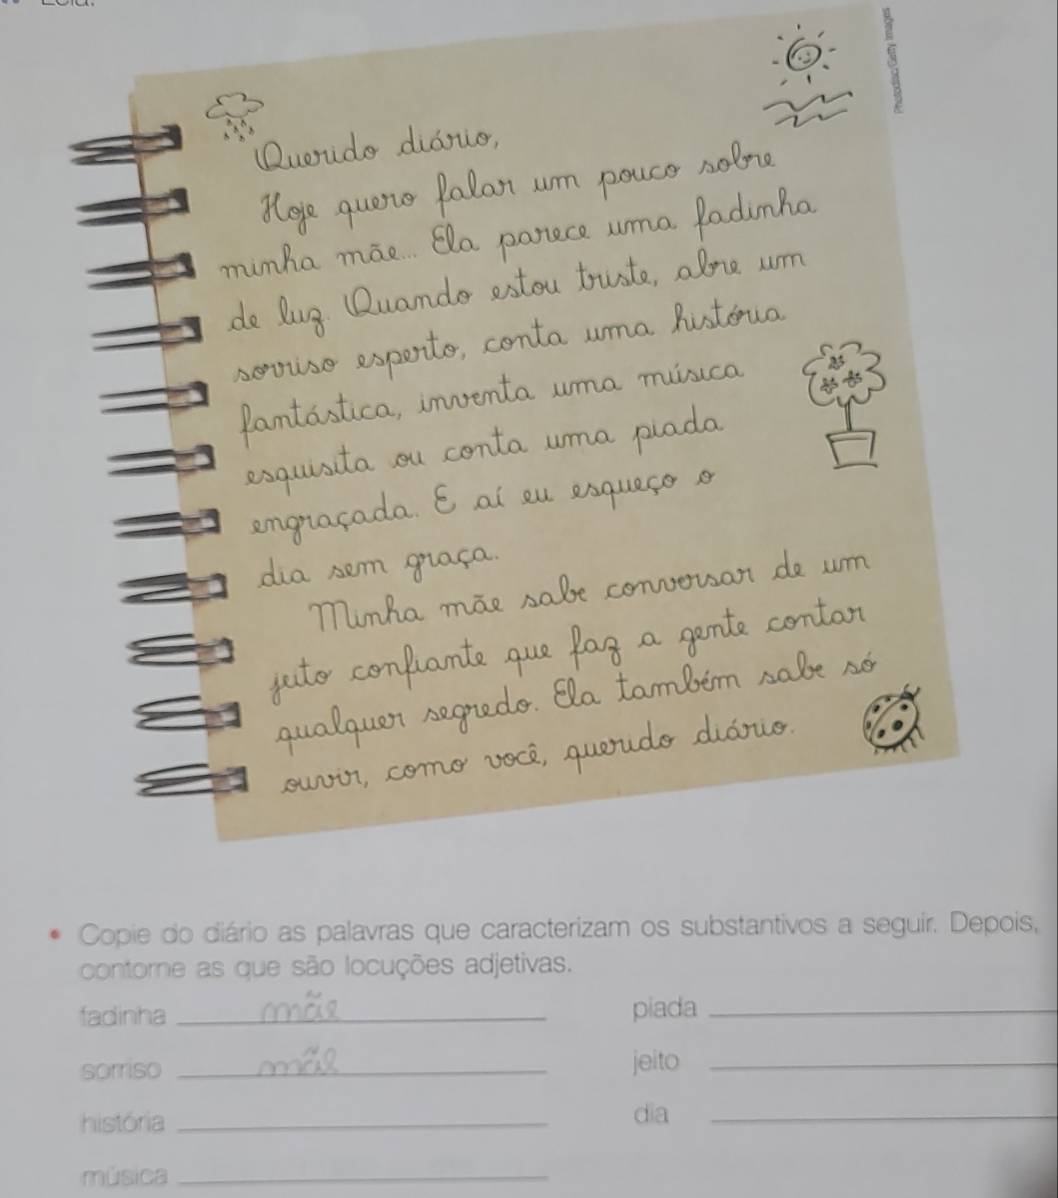 Photodisc/Getty Images
Querido diário,
Hoje quero falar um pouco sobre
minha mãe... Ela parece uma fadinha
de luz. Quando estou triste, abre um
sorriso esperto, conta uma história
fantástica, inventa uma música
esquisita ou conta uma piada
engraçada. E aí eu esqueço o
dia sem graça.
Minha mãe sabe conversar de um
jeito confiante que faz a gente contar
qualquer segredo. Ela também sabe só
ouvir, como você, querido diário.
• Copie do diário as palavras que caracterizam os substantivos a seguir. Depois,
contorne as que são locuções adjetivas.
fadinha mãe
piada
sorriso mãe
jeito
história
dia
música